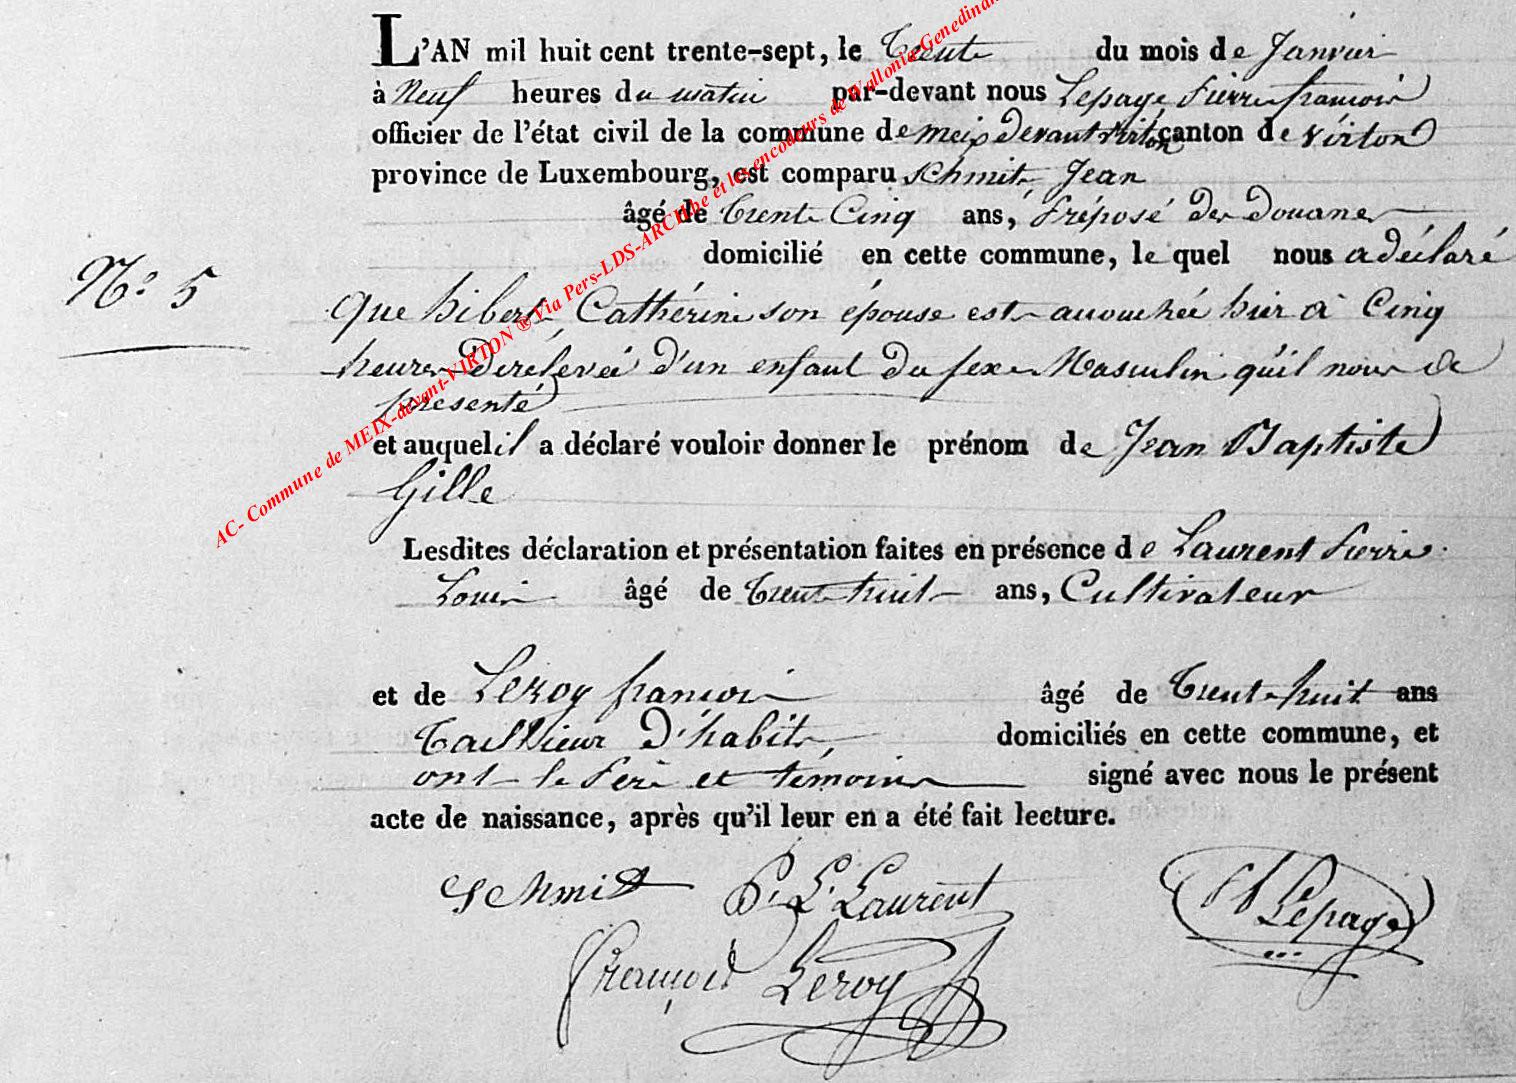 L'AN mil huit cent trente-sept, le Trente du mois de Janvier
à Neuf heures du matin par-devant nous Lepage Pierre françois
officier de l'état civil de la commune de Meix devant virton canton de virton
province de Luxembourg, est comparu Schmit Jean
âgé de Trente Cinq ans, Préposé des Douanes
domicilié en cette commune, le quel nous a déclaré
N.º 5
que hibert Cathérine son épouse est accouchée hier à Cinq
heures De rélevée d'un enfant du sexe Masculin qu'il nous a
présenté
et auquel il a déclaré vouloir donner le prénom de Jean Baptiste
Gille
Lesdites déclaration et présentation faites en présence de Laurent Pierre
Louis âgé de Trente huit ans, Cultivateur
et de Leroy françois âgé de Trente huit ans
Tailleur d'habits, domiciliés en cette commune, et
ont le Père et témoins signé avec nous le présent
acte de naissance, après qu'il leur en a été fait lecture.
Schmit P. L. Laurent Lepage
François Leroy
AC- Commune de MEIX-devant-VIRTON ® Via Pers-LDS-ARCH.be et les encodeurs de Wallonia Genedinan